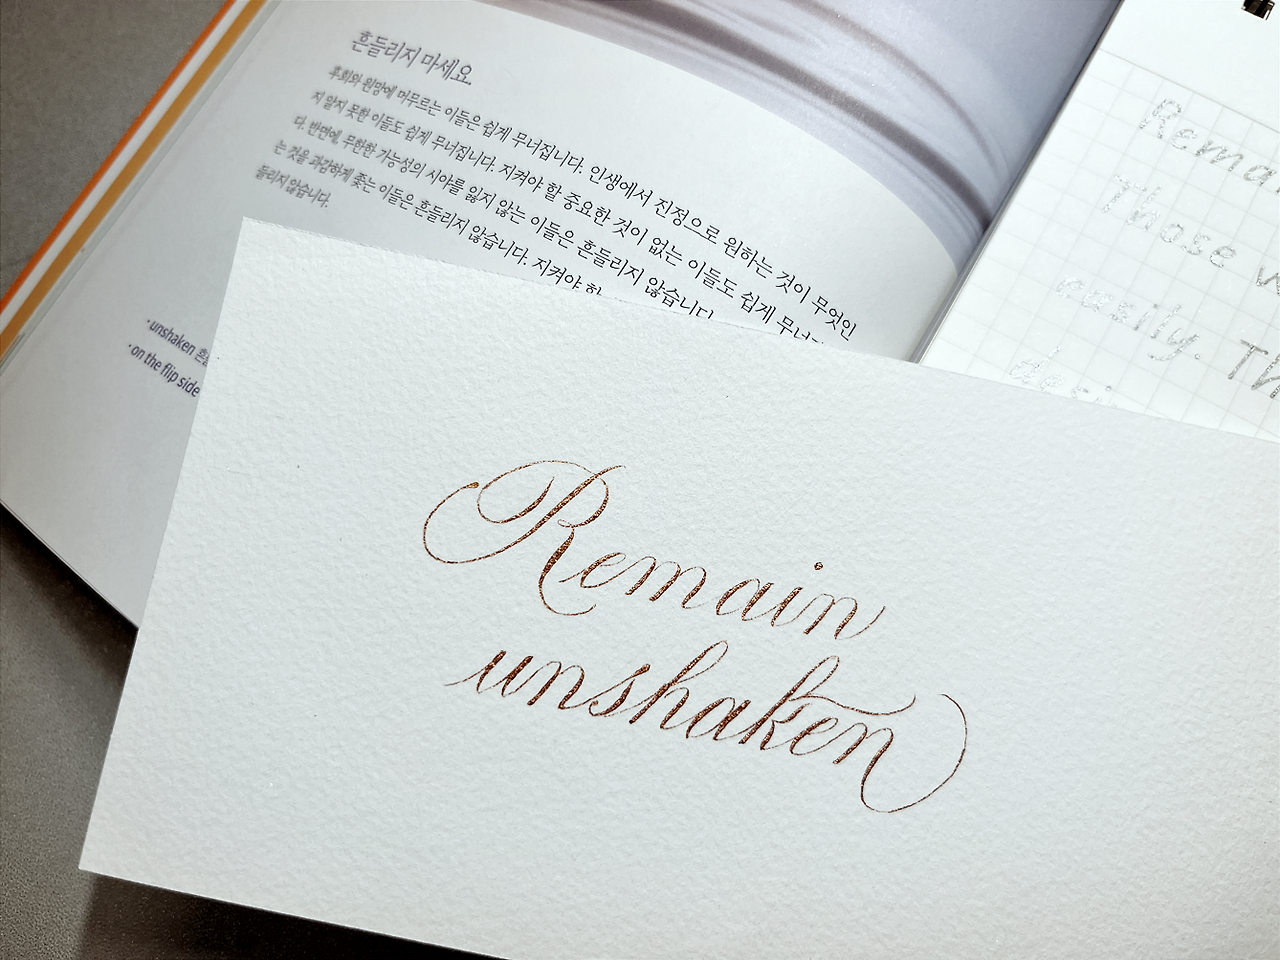 흔들리지 마세요
후회와 원망에 머무르는 이들은 쉽게 무너집니다. 인생에서 진정으로 원하는 것이 무엇인
지 알지 못한 이들도 쉽게 무너집니다. 지켜야 할 중요한 것이 없는 이들도 쉽게 무너
다. 반면에, 무한한 가능성의 시야를 잃지 않는 이들은 흔들리지 않습니다.
는 것을 과감하게 좇는 이들은 흔들리지 않습니다. 지켜야 할
들리지 않습니다.
· unshaken 흔
· on the flip side
Remai
Those w
easily. Th
desi
Remain
unshaken